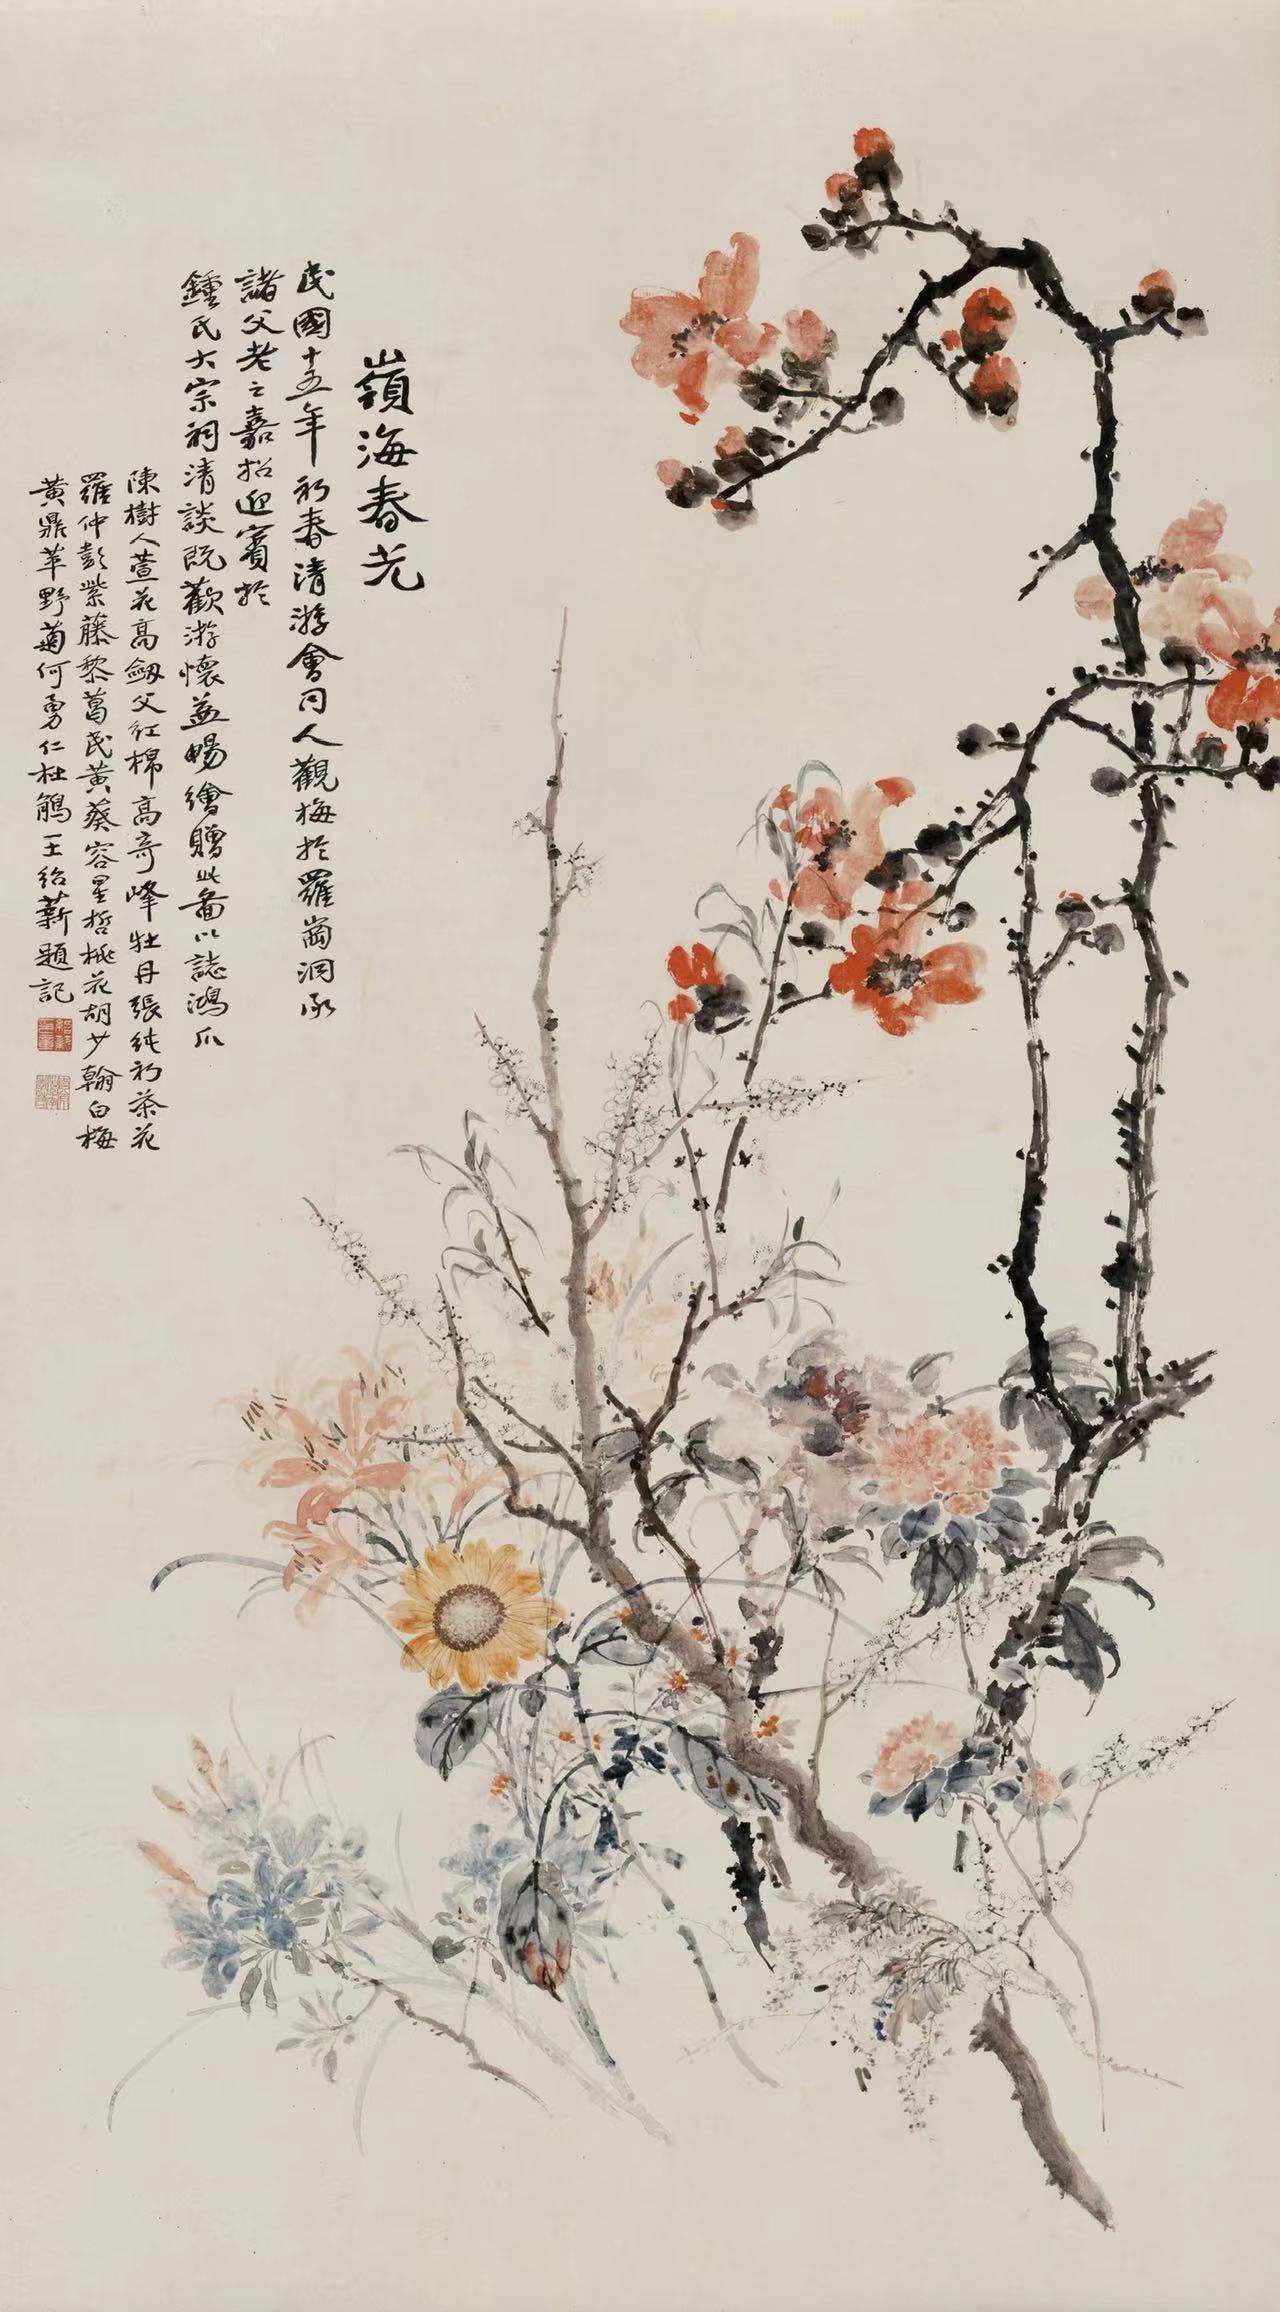 嶺海春光
民國十五年初春清游會同人觀梅於羅崗洞承
諸父老之嘉招迎賓於
鍾氏大宗祠清談既歡游懷益暢繪贈此畫以誌鴻爪
陳樹人萱花高劔父紅棉高奇峰牡丹張純初茶花
羅仲彭紫藤黎葛民黃葵容星哲桃花胡少翰白梅
黃鼎苹野菊何勇仁杜鵑王紹薪題記